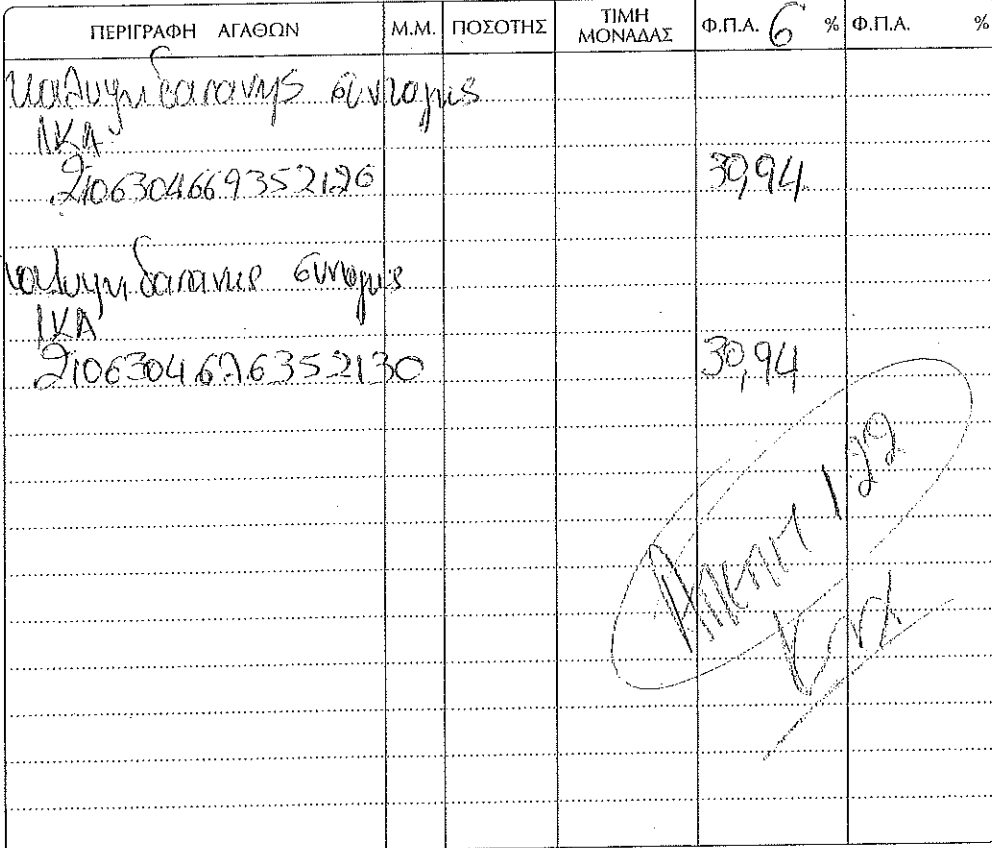 ΠΕΡΙΓΡΑΦΗ ΑΓΑΘΩΝ Μ.Μ. ΠΟΣΟΤΗΣ ΤΙΜΗ ΜΟΝΑΔΑΣ Φ.Π.Α. 6 % Φ.Π.Α. %
καλυψη δαπανης συνταγης
ΙΚΑ
2106304669352126 30,94
καλυψη δαπανης συνταγης
ΙΚΑ
30,94